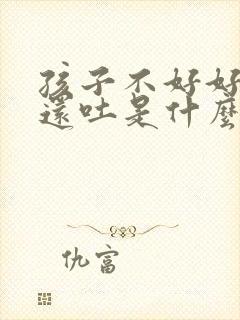 孩子不好好
還吐是什麼
仇富